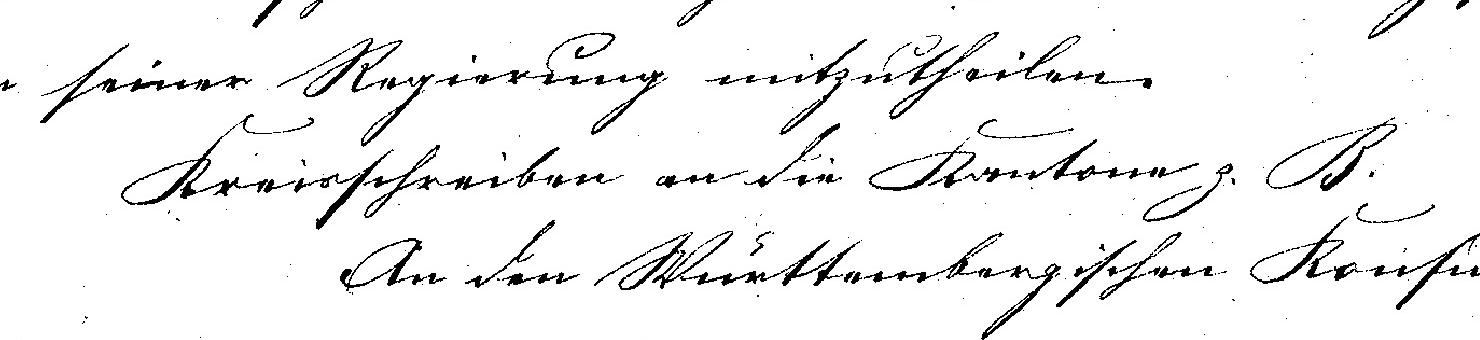 seiner Regierung mitzutheilen.
Kreisschreiben an die Kantone z. B.
An den Württembergischen Konsu